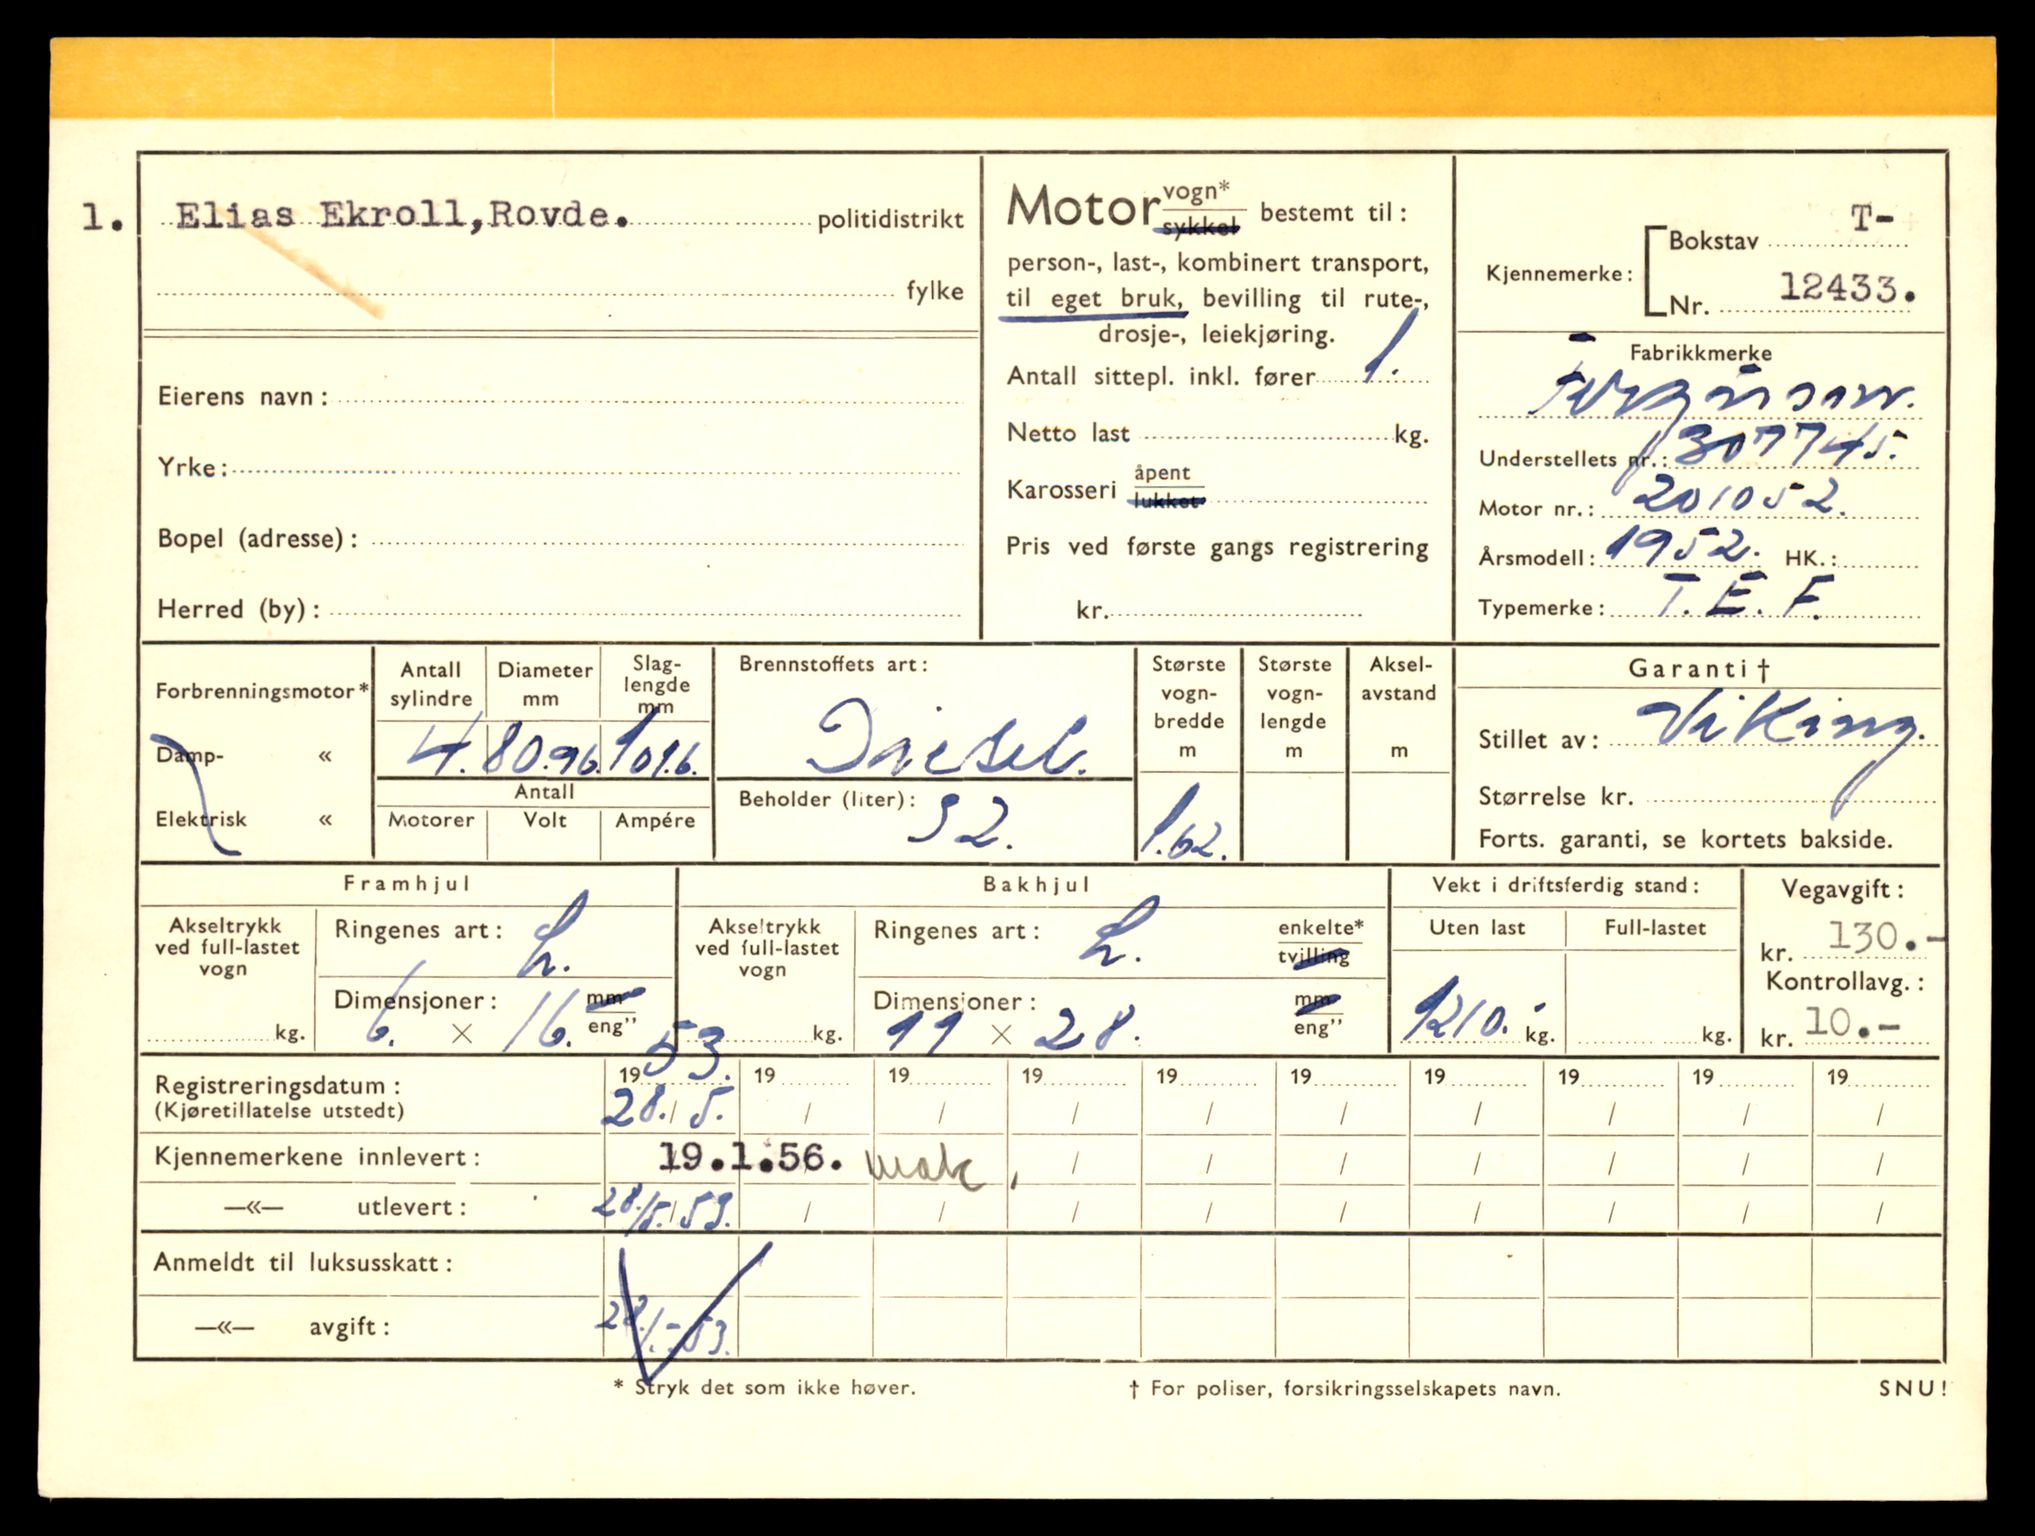 1. Elias Ekroll,Rovde. politidistrikt
fylke
Eierens navn:
Yrke:
Bopel (adresse):
Herred (by):
Motor vogn* sykkel bestemt til:
person-, last-, kombinert transport,
til eget bruk, bevilling til rute-,
drosje-, leiekjøring.
Antall sittepl. inkl. fører 1.
Netto last kg.
Karosseri åpent lukket
Pris ved første gangs registrering
kr.
Kjennemerke: Bokstav T-
Nr. 12433.
Fabrikkmerke
Ferguson.
Understellets nr.: 307745.
Motor nr.: 201052.
Årsmodell: 1952. HK.:
Typemerke: T.E.F.
Forbrenningsmotor*
Damp- «
Elektrisk «
Antall sylindre
Diameter mm
Slag-lengde mm
4. 80.96. 101.6.
Antall
Motorer Volt Ampére
Brennstoffets art:
Diesel.
Beholder (liter):
32.
Største vogn-bredde m
1.62.
Største vogn-lengde m
Aksel-avstand m
Garanti†
Stillet av: Viking.
Størrelse kr.
Forts. garanti, se kortets bakside.
Framhjul
Akseltrykk ved full-lastet vogn
kg.
Ringenes art: L.
Dimensjoner: mm eng"
6. × 16.
Bakhjul
Akseltrykk ved full-lastet vogn
kg.
Ringenes art: L. enkelte* tvilling
Dimensjoner: mm eng"
11 × 28.
Vekt i driftsferdig stand:
Uten last Full-lastet
1210.- kg. kg.
Vegavgift:
kr. 130.-
Kontrollavg.:
kr. 10.-
Registreringsdatum: 1953. 19 19 19 19 19 19 19 19 19
(Kjøretillatelse utstedt) 28./5. / / / / / / / / /
Kjennemerkene innlevert: 19.1.56. mak. / / / / / / /
—«— utlevert: 28./5. 53. / / / / / / / / /
Anmeldt til luksusskatt:
—«— avgift: 28/.-53.
* Stryk det som ikke høver.
† For poliser, forsikringsselskapets navn.
SNU!